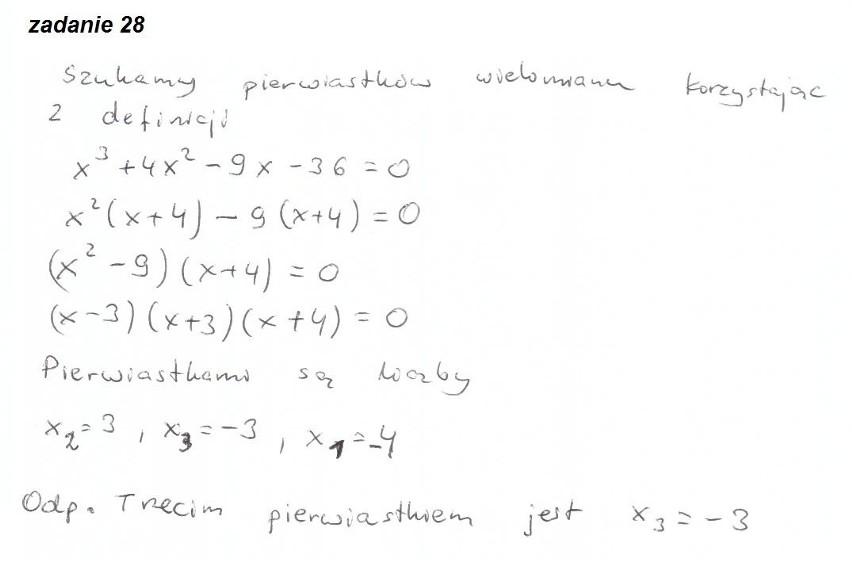 zadanie 28
Szukamy pierwiastków wielomianu korzystając
z definicji
x³ + 4x² - 9x - 36 = 0
x²(x+4) - 9(x+4) = 0
(x² - 9)(x+4) = 0
(x-3)(x+3)(x+4) = 0
Pierwiastkami są liczby
x₂ = 3, x₃ = -3, x₁ = -4
Odp. Trzecim pierwiastkiem jest x₃ = -3